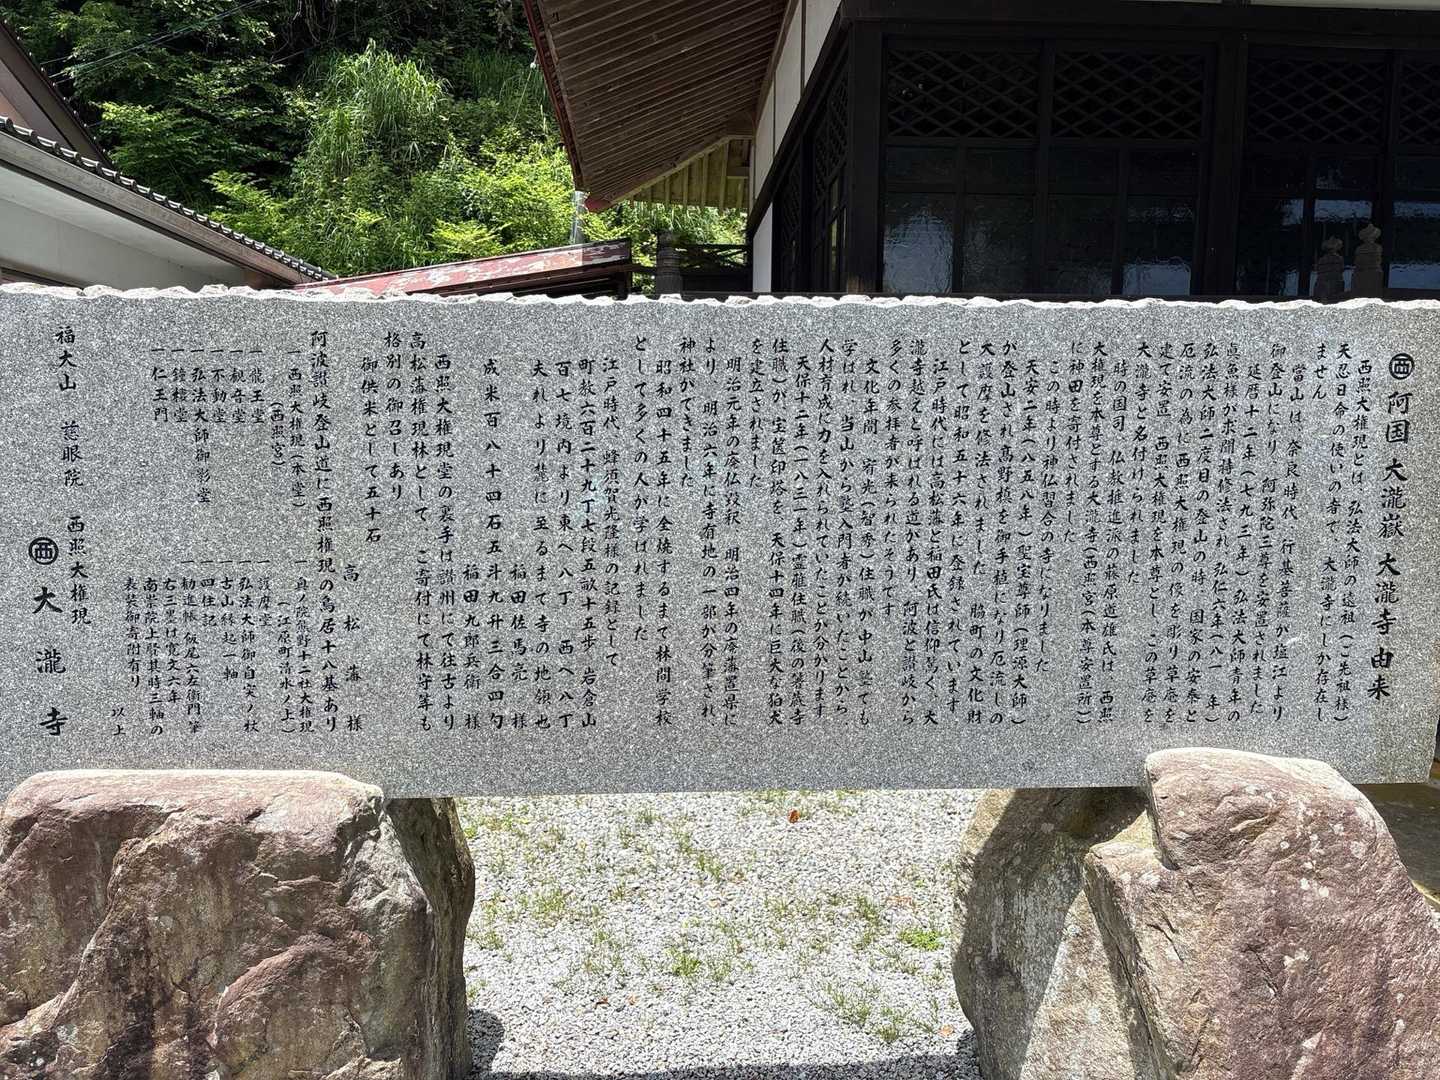 ㊄ 阿国 大瀧嶽 大瀧寺由来
西照大権現とは、弘法大師の遠祖(ご先祖様)
天忍日命の使いの者で、大瀧寺にしか存在し
ません
當山は、奈良時代、行基菩薩が塩江より
御登山になり、阿弥陀三尊を安置されました
延暦十二年(七九三年)弘法大師青年の
真魚様が求聞持修法され、弘仁六年(八一 年)
弘法大師二度目の登山の時、国家の安泰と
厄流の為に西照大権現の像を彫り草庵を
建て安置、西照大権現を本尊とし、この草庵を
大瀧寺と名付けられました
時の国司、仏教推進派の藤原道雄氏は、西照
大権現を本尊とする大瀧寺(西照宮(本尊安置所))
に神田を寄付されました
この時より神仏習合の寺になりました
天安二年(八五八年)聖宝尊師(理源大師)
が登山され、高野槙を御手植になり厄流しの
大護摩を修法されました 脇町の文化財
として昭和五十六年に登録されています
江戸時代には高松藩と稲田氏は信仰篤く、大
瀧寺越えと呼ばれる道があり、阿波と讃岐から
多くの参拝者が来られたそうです
文化年間、宥光(智秀)住職が中山塾でも
学ばれ、当山から塾入門者が続いたことから、
人材育成に力を入れられていたことが分かります
天保十二年(一八三一年)霊雅住職(後の箸蔵寺
住職)が、宝篋印塔を、天保十四年に巨大な狛犬
を建立されました
明治元年の廃仏毀釈、明治四年の廃藩置県に
より、明治六年に寺有地の一部が分筆され、
神社ができました
昭和四十五年に全焼するまで林間学校
として多くの人が学ばれました
江戸時代、蜂須賀光隆様の記録として
町数六百二十九丁七段五畝十五歩、岩倉山
百七境内より東へ八丁 西へ八丁
夫れより麓に至るまで寺の地領也
稲田佐馬亮 様
稲田九郎兵衛 様
成米百八十四石五斗九升三合四勺
西照大権現堂の裏手は讃州にて往古より
高松藩権現林として、ご寄付にて林守等も
格別の御召しあり
御供米として五十石
高松藩様
阿波讃岐登山道に西照権現の鳥居十八基あり
一西照大権現(本堂)
(西照宮)
一奥ノ院熊野十二社大権現
(江原町清水ノ上)
一龍王堂
一護摩堂
一観音堂
一弘法大師御自実ノ杖
一不動堂
一古山縁起一軸
一弘法大師御影堂
一四住記
一鐘楼堂
一勧進帳飯尾六左衛門筆
一仁王門
右三里は寛文六年
南栗院上賢其時三軸の
表装御寄附有り
以上
福大山 慈眼院 西照大権現
㊄ 大瀧寺